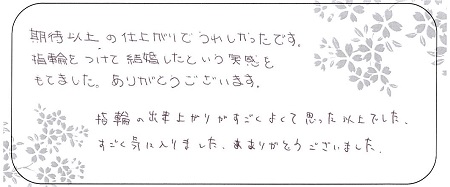 期待以上の仕上がりでうれしかったです。
指輪をつけて結婚したという実感を
もてました。ありがとうございます。
指輪の出来上がりがすごくよくて思った以上でした。
すごく気に入りました。ありがとうございました。